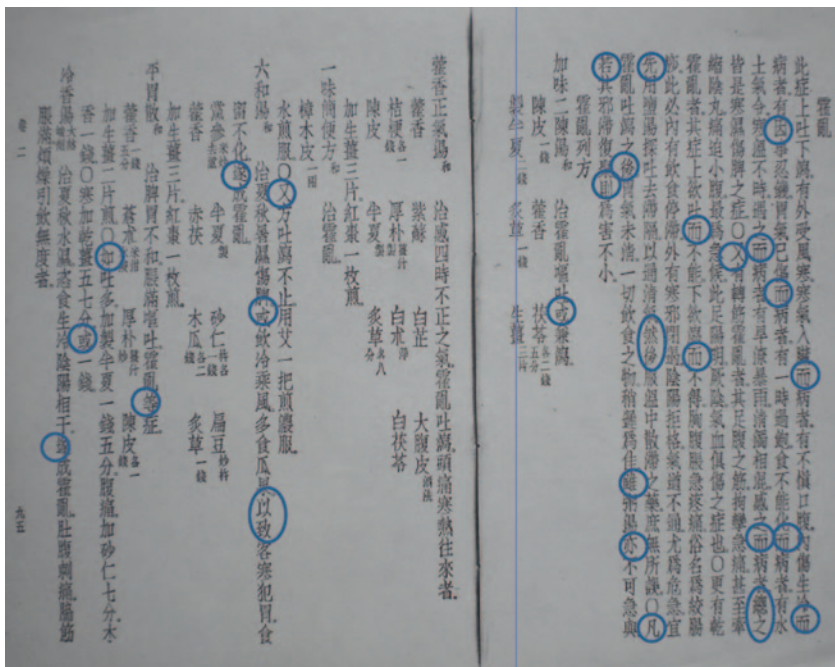 霍亂
此症上吐下瀉有外受風寒寒氣入臟而病者有不慎口腹內傷生冷而
病者有因事忍饑胃氣已傷而病者有一時過飽食不能化而病者有水
土氣令寒溫不時遇之而病者有旱潦暴雨清濁相亂感之而病者總之
皆是寒濕傷脾之症〇又有轉筋霍亂者其足腹之筋拘攣急痛甚至牽
縮陰丸痛迫小腹最為急候此足陽明厥陰氣血俱傷之症也〇更有乾
霍亂者其症上欲吐而不能下欲瀉而不得胸腹脹急疼痛俗名為絞腸
痧此必內有飲食停滯外有寒邪閉遏陰陽拒格氣道不通尤為危急宜
先用鹽湯探吐去滯隔以通清氣然後服溫中散滯之藥庶無所誤〇凡
霍亂吐瀉之後胃氣未清一切飲食之物稍遲為佳雖粥湯亦不可急與
若其邪滯復聚則為害不小
霍亂列方
加味二陳湯 和 治霍亂嘔吐或兼瀉
陳皮 一錢 藿香 茯苓 各二錢五分
製半夏 二錢 炙草 一錢 生薑 三片
藿香正氣湯 和 治感四時不正之氣霍亂吐瀉頭痛寒熱往來者
藿香 紫蘇 白芷 大腹皮
桔梗 各一錢 厚朴 薑汁製 白朮 白茯苓
陳皮 半夏 製 炙草 各八分
加生薑三片紅棗一枚煎
一味簡便方 和 治霍亂
樟木皮 一兩
水煎服〇又方吐瀉不止用艾一把煎濃服
六和湯 和 治夏秋暑濕傷脾或飲冷乘風多食瓜果以致客寒犯胃食
留不化遂成霍亂
黨參 米炒去蘆 半夏 製 砂仁 杵各一錢 扁豆 炒杵
藿香 赤茯 木瓜 各二錢 炙草 一錢
加生薑三片紅棗一枚煎
平胃散 和 治脾胃不和脹滿嘔吐霍亂等症
藿香 一錢五分 蒼朮 厚朴 薑汁炒 陳皮 各一錢
加生薑二片煎〇如吐多加製半夏一錢五分腹痛加砂仁七分木
香一錢〇寒加乾薑五七分或一錢
冷香湯 治夏秋水濕恣食生冷陰陽相干遂成霍亂肚腹刺痛脇筋
脹滿煩燥引飲無度者
卷二
九五